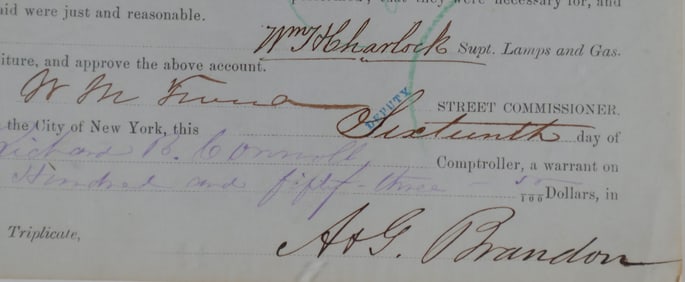 they were necessary for, and
aid were just and reasonable.
Wm H Charlock Supt. Lamps and Gas.
iture, and approve the above account.
W M STREET COMMISSIONER.
DEPUTY
the City of New York, this Sixteenth day of
Richard B. Connolly Comptroller, a warrant on
Hundred and fifty-three 100 Dollars, in
Triplicate,
A & G. Brandon